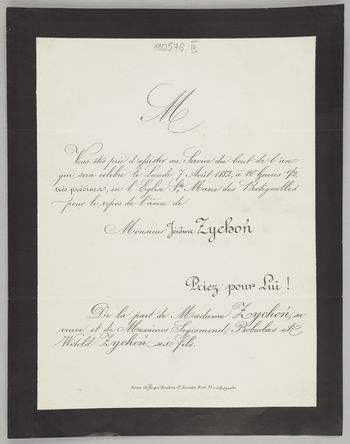 110576 III
M
Vous êtes prié d'assister au Service du bout de l'an
qui sera célébré le Lundi 7 Août 1882, à 10 heures 1/2
très précises, en l'Eglise Ste Marie des Batignolles
pour le repos de l'âme de
Monsieur Jérôme Zychoń
Priez pour Lui !
De la part de Madame Zychoń, sa
veuve et de Messieurs Sigismond, Boleslas et
Witold Zychoń, ses fils.